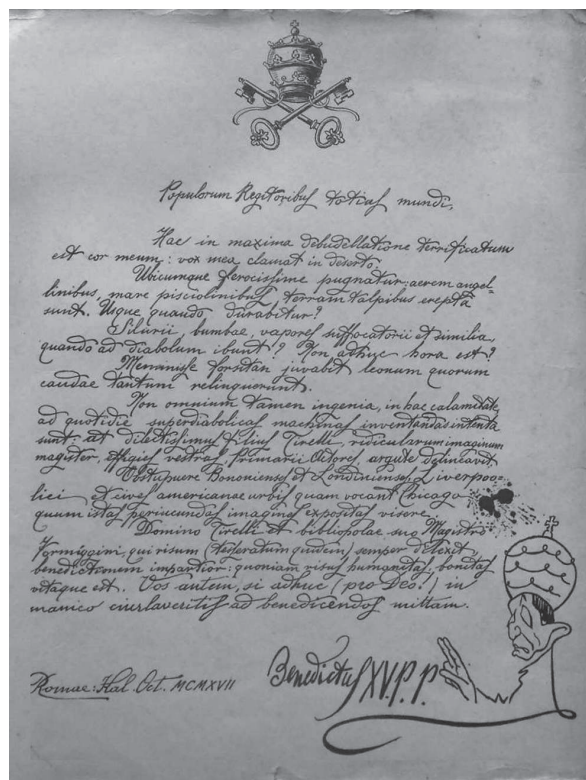 Populorum Regitoribus totius mundi,
Hac in maxima debudellatione terrificatum
est cor meum: vox mea clamat in deserto.
Ubicumque ferocissime pugnatur: aerem angel-
linibus, mare pisciolinibus, terram talpibus erepta
sunt. Usque quando durabitur?
Silurii, bumbae, vapores suffocatorii et similia,
quando ad diabolum ibunt? Non adhuc hora est?
Meminisse forsitan juvabit leonum quorum
caudae tantum relinquerunt.
Non omnium tamen ingenia, in hac calamitate,
ad quotidie superdiabolicas machinas inventandas intenta
sunt: at dilectissimus filius Tirelli, ridicularum imaginum
magister, effigies vestras, Primarii Actores, argute delineavit.
Obstupuere Bononienses et Londinienses, Liverpoo-
lici et cives americanae urbis quam vocant Chicago
quum istas periucundas imagines expositas visere.
Domino Tirelli et bibliopolae suo Magistro
Formiggini, qui risum (desperatum quidem) semper dilexit,
benedictionem impartior: quoniam risus humanitas, bonitas
vitaque est. Vos autem, si adhuc (pro Deo!) in
manico ciurlaveritis ad benedicendos mittam.
Romae: Kal. Oct. MCMXVII
Benedictus XV. P. P.